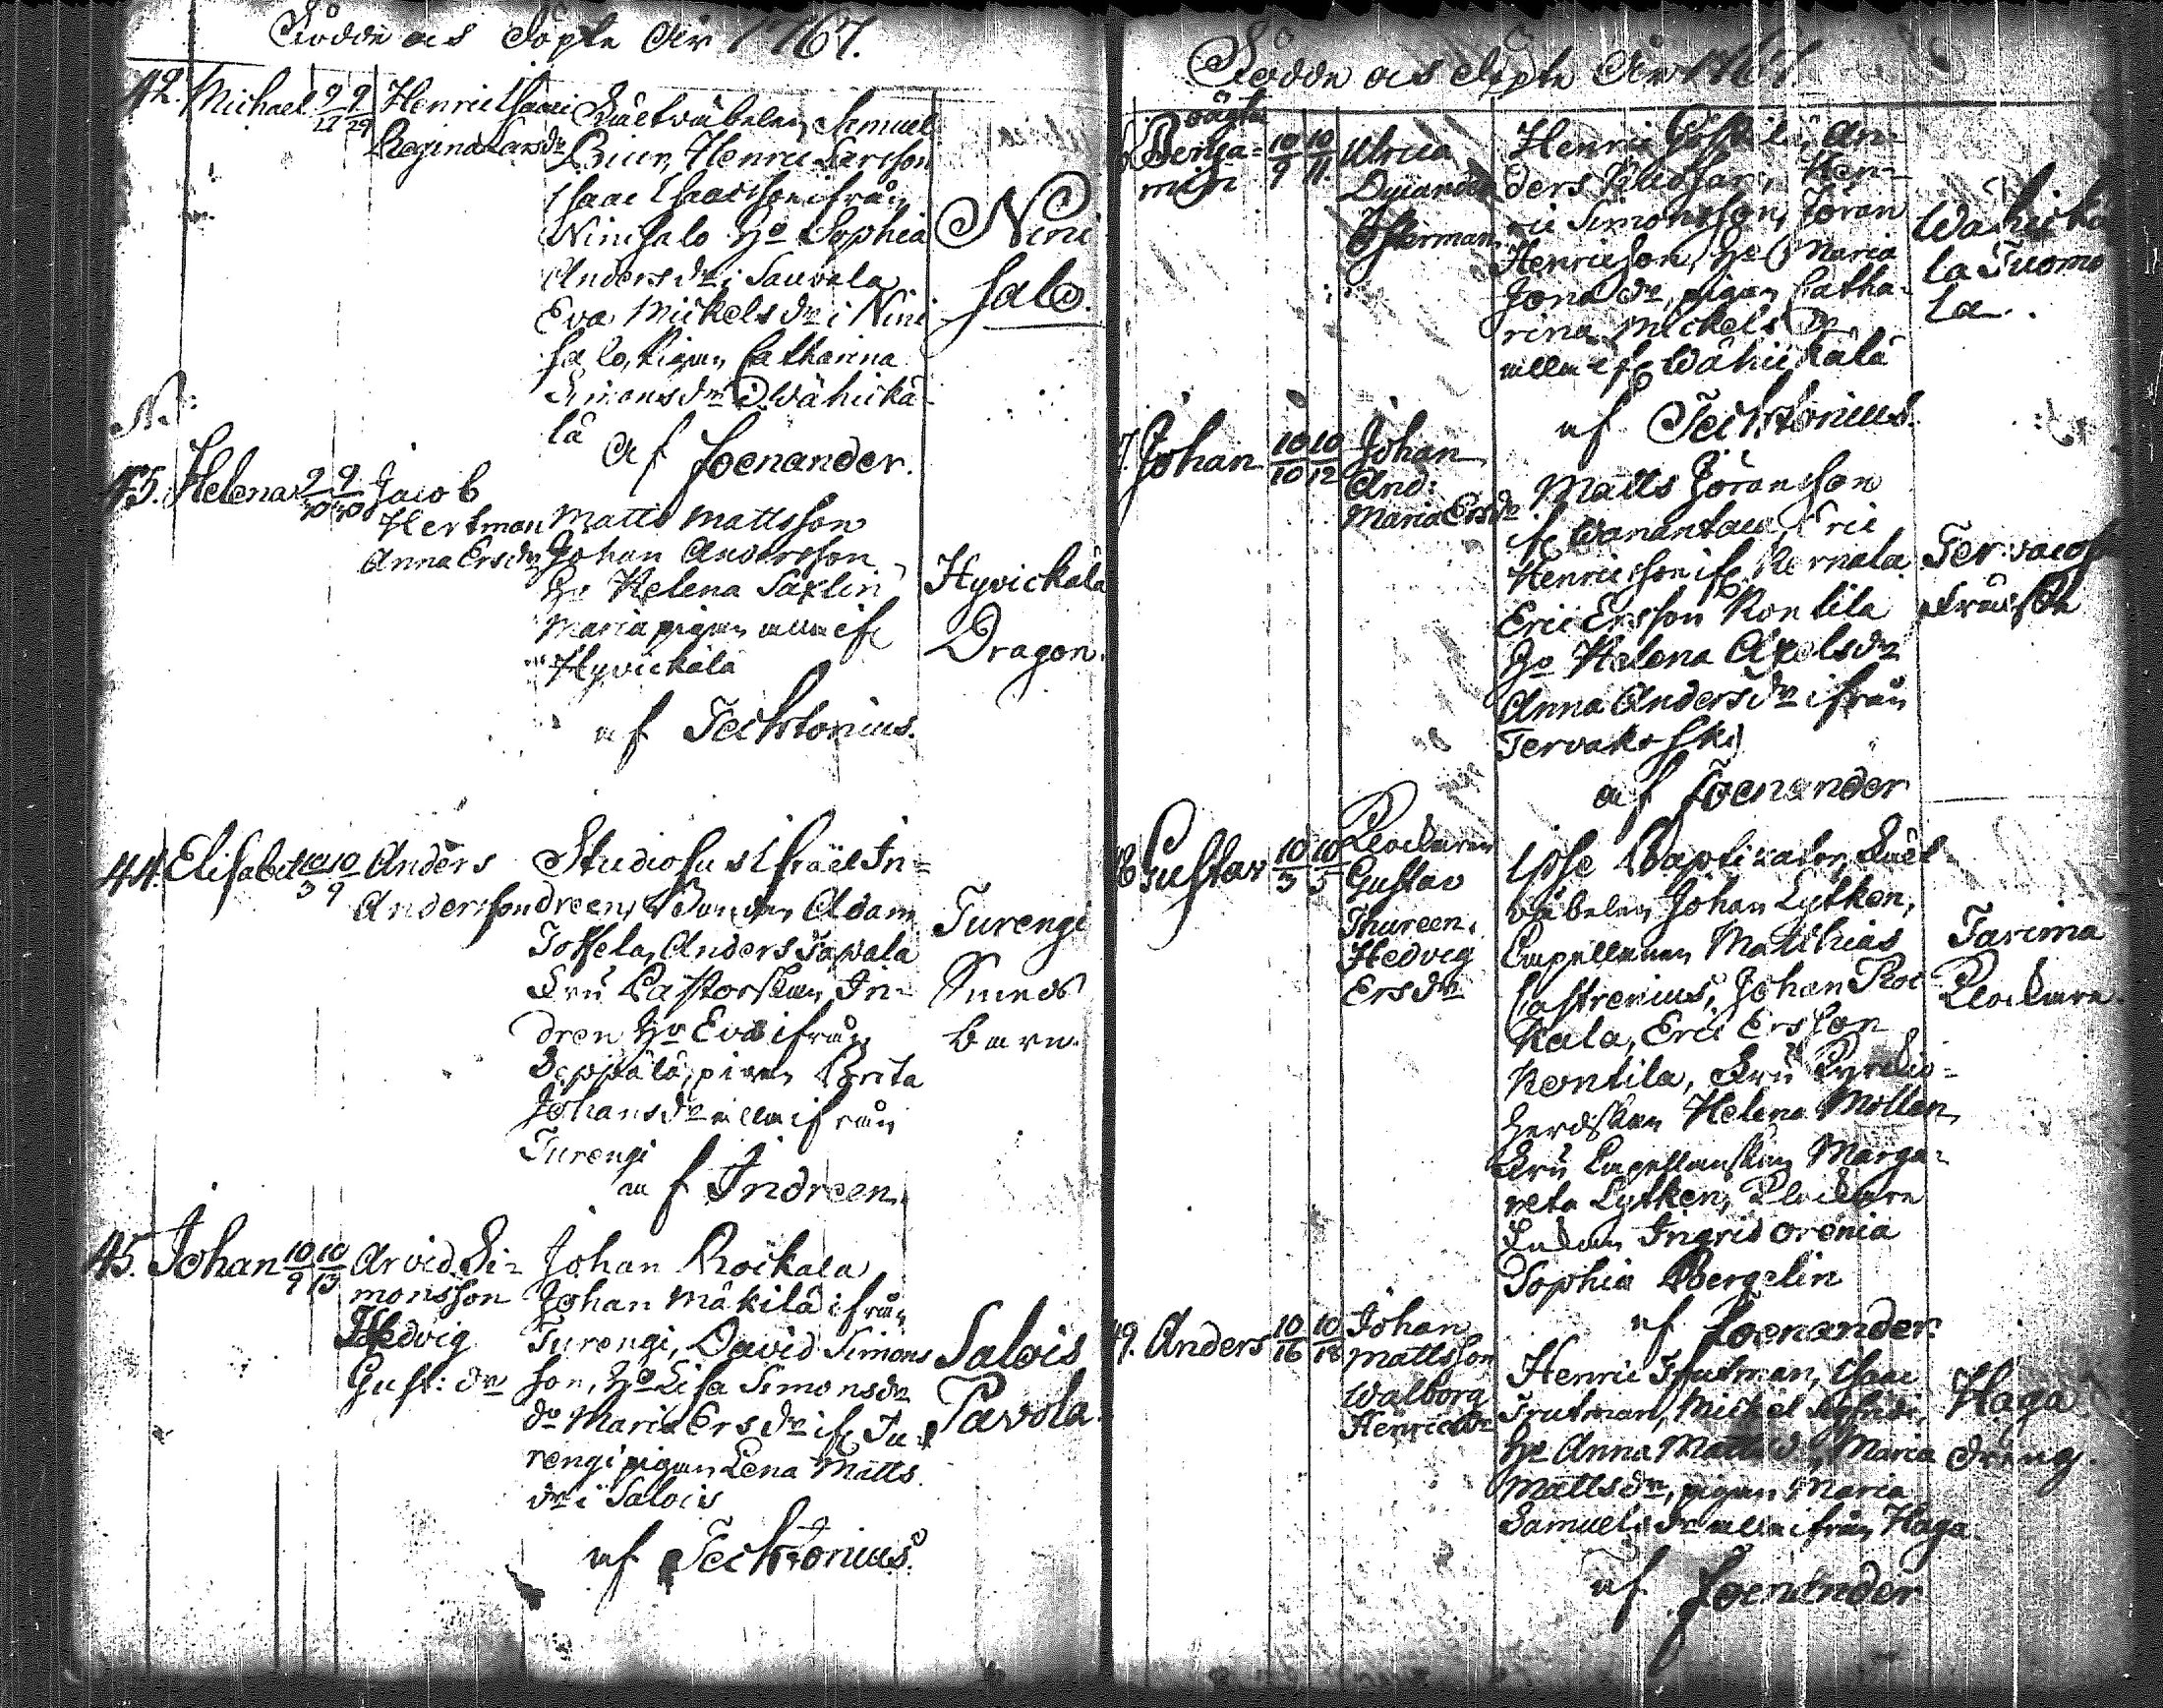 Födde och Döpte År 1767.
42. Michael 9/27 9/29 Henric Isaaci
Regina Larsdr
Rustväbelen Samuel
Henric Larsson
Isaac Isaacsson ifrån
Ninisalo Ho Sophia
Andersdr i Sauvala
Eva Mickelsdr i Nini
salo, Pigan Catharina
Simonsdr i Wähickä
lä
af Foenander.
Nini
salo.
N.
43. Helena 9/30 9/30 Jacob
Hertman
Anna Ersdr
Matts Mattsson
Johan Andersson
Ho Helena Saxlin
Maria pigan alla if
Hyvickälä
af Techtonius.
Hyvickälä
Dragon.
44. Elisabet 10/3 10/9 Anders
Andersson
Studiosus Isräel In-
dreen, Bonden Adam
Tokela, Anders Tapala
Fru Pastorskan In-
dren Ho Eva ifrån
Seppälä, pigan Brita
Johansdr alla ifrån
Turengi
af Indreen.
Turengi
Smeds
barn.
45. Johan 10/9 10/13 Arvid Si-
monsson
Hedvig
Gust: dr
Johan Rockala
Johan Mäkilä ifrån
Turengi, David Simons
son, Ho Lisa Simonsdr
do Maria Ersdr if Tu-
rengi pigan Lena Matts
dr i Salois
af Techtonius.
Salois
Pavola.
Födde och Döpte År 1767.
oägta
Benja-
min 10/9 10/11 Ulrica
Österman
Henric An-
ders Hen-
ric Simonsson, Jöran
Henricsson, Ho Maria
Jonædr, pigan Catha-
rina Mickelsdr
alla if Wähickälä
af Techtonius.
Wähickä
la Tuomo
la.
7. Johan 10/10 10/12 Johan
And:
Maria Ersdr
Matts Jöransson
if Wanantaca, Eric
Henricsson if Kernala
Eric Ersson Kontila
Ho Helena Axelsdr
Anna Andersdr ifrån
Tervakoski
af Foenander
48 Gustav 10/3 10/5 Klockaren
Gustav
Thureen.
Hedvig
Ersdr
Ipse Baptizator, Rust-
väbelen Johan Lytken,
Capellanen Matthias
Castrenius, Johan Roc-
kala, Eric Ersson
Kontila, Fru
Helena Mollen,
Fru Capellanskan Marga-
reta Lytken, Klockare
Enkan Ingrid Orenia
Sophia Bergelin
af Foenander.
Tarima
Klockare.
49. Anders 10/16 10/18 Johan
Mattsson
Walborg
Henricsdr
Henric Trutman, Isaac
Trutman, Mickel
Ho Anna Mattsdr, Maria
Mattsdr, pigan Maria
Samuelsdr alla ifrån Haga.
af Foenander
Haga
dräng.